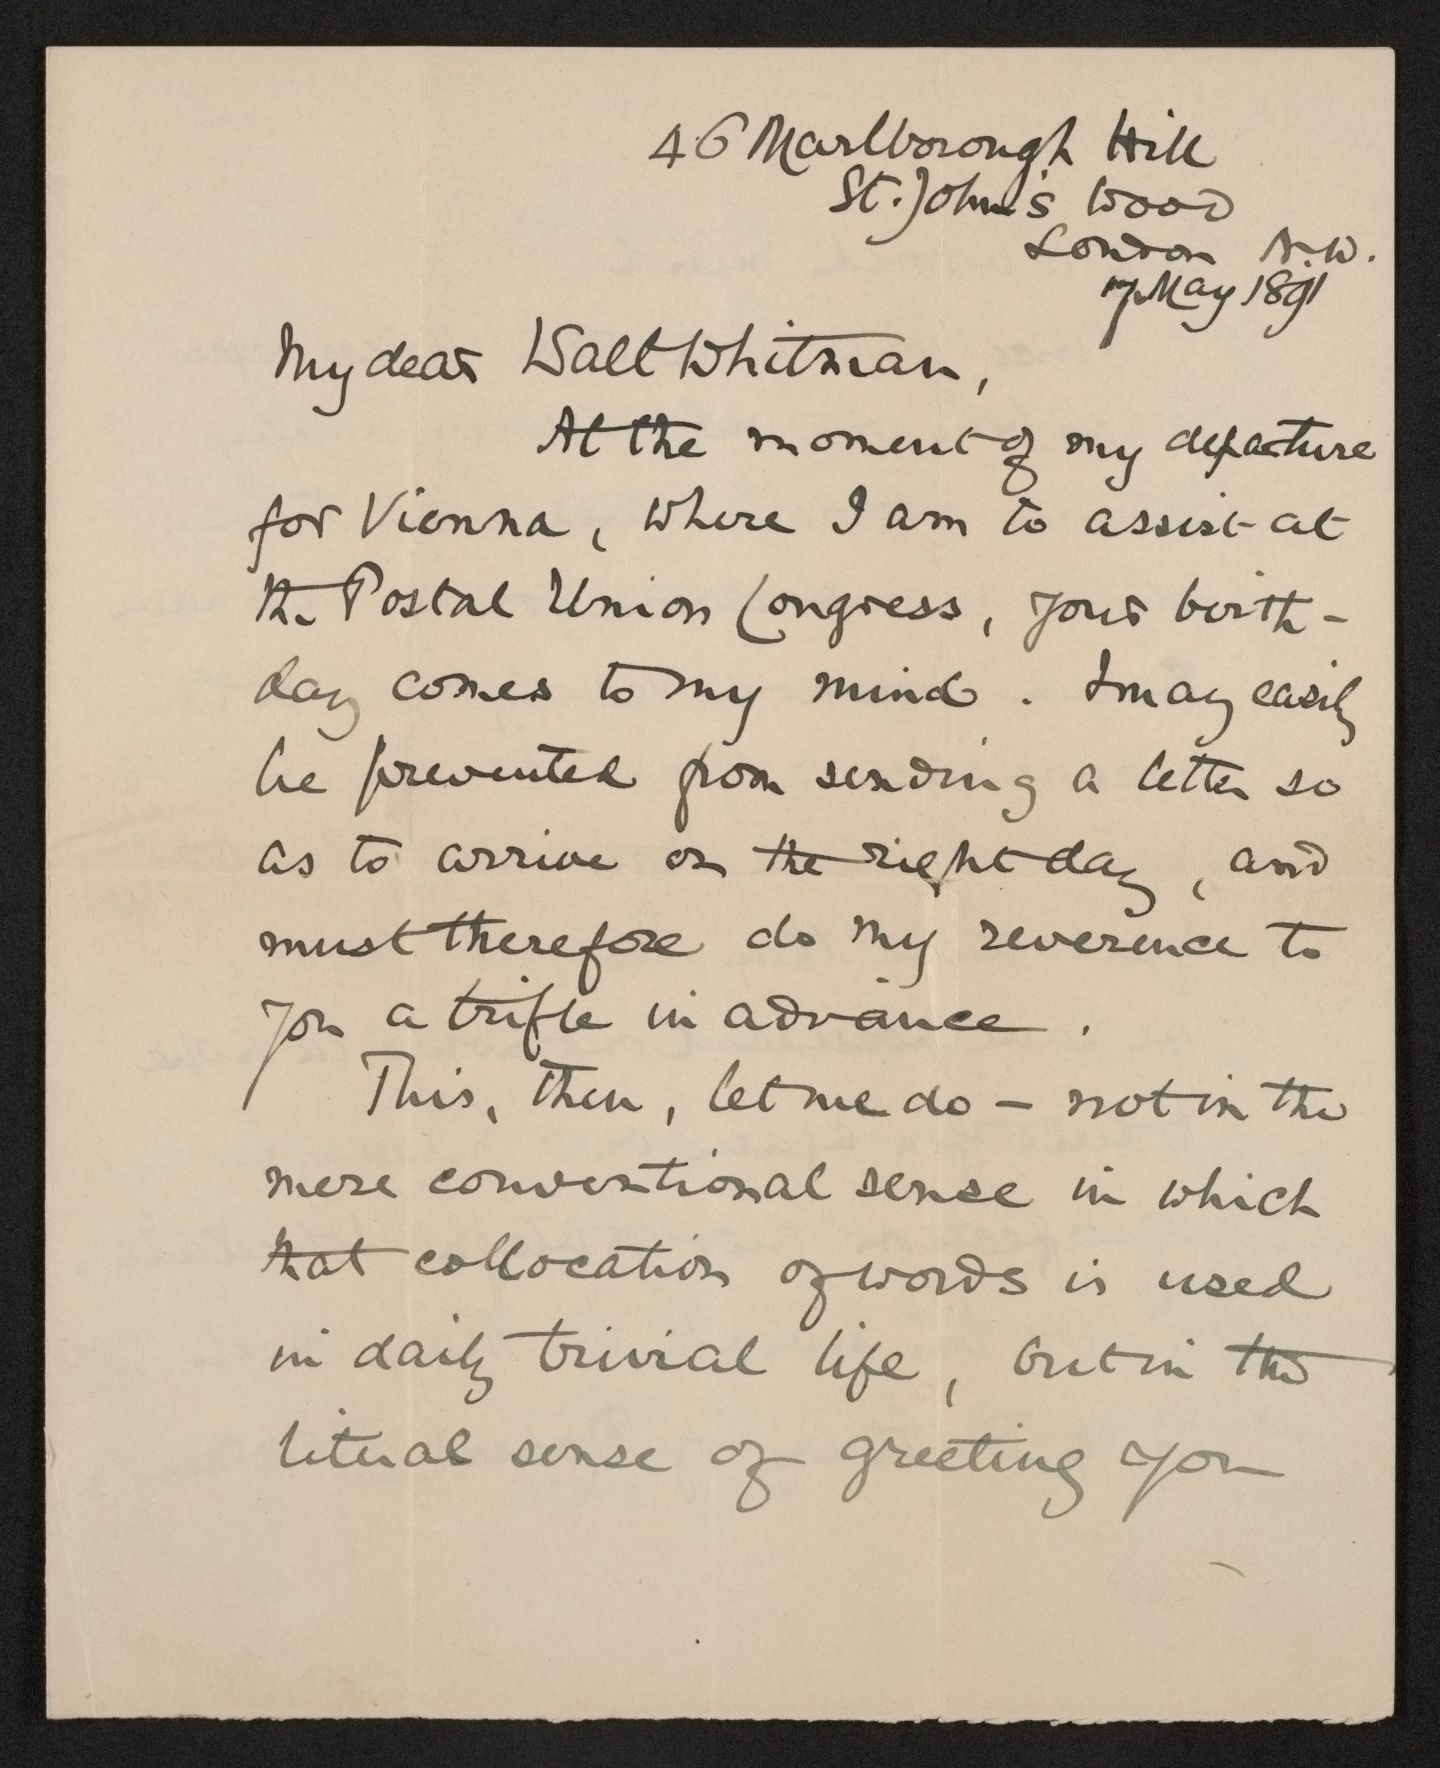 46 Marlborough Hill
St. John's Wood
London N.W.
17 May 1891
My dear Walt Whitman,
At the moment of my departure
for Vienna, where I am to assist at
the Postal Union Congress, your birth-
day comes to my mind. I may easily
be prevented from sending a letter so
as to arrive on the right day, and
must therefore do my reverence to
you a trifle in advance.
This, then, let me do – not in the
mere conventional sense in which
that collocation of words is used
in daily trivial life, but in the
literal sense of greeting you